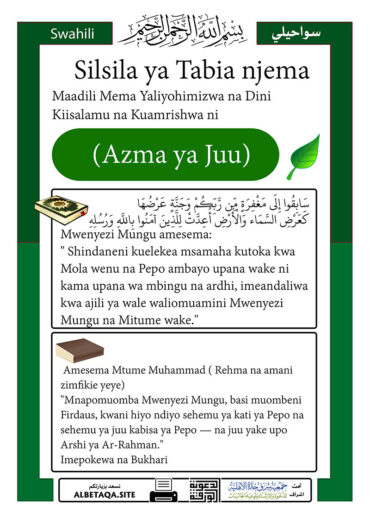 Swahili
بسم الله الرحمن الرحيم
سواحيلي
Silsila ya Tabia njema
Maadili Mema Yaliyohimizwa na Dini
Kiisalamu na Kuamrishwa ni
(Azma ya Juu)
سَابِقُوا إِلَى مَغْفِرَةٍ مِّن رَّبِّكُمْ وَجَنَّةٍ عَرْضُهَا
كَعَرْضِ السَّمَاء وَالْأَرْضِ أُعِدَّتْ لِلَّذِينَ آمَنُوا بِاللَّهِ وَرُسُلِهِ
Mwenyezi Mungu amesema:
" Shindaneni kuelekea msamaha kutoka kwa
Mola wenu na Pepo ambayo upana wake ni
kama upana wa mbingu na ardhi, imeandaliwa
kwa ajili ya wale waliomuamini Mwenyezi
Mungu na Mitume wake."
Amesema Mtume Muhammad ( Rehma na amani
zimfikie yeye)
"Mnapomuomba Mwenyezi Mungu, basi muombeni
Firdaus, kwani hiyo ndiyo sehemu ya kati ya Pepo na
sehemu ya juu kabisa ya Pepo — na juu yake upo
Arshi ya Ar-Rahman."
Imepokewa na Bukhari
نسعد بزيارتكم
ALBETAQA.SITE
الدعوية
الورقية
تحت
اشراف